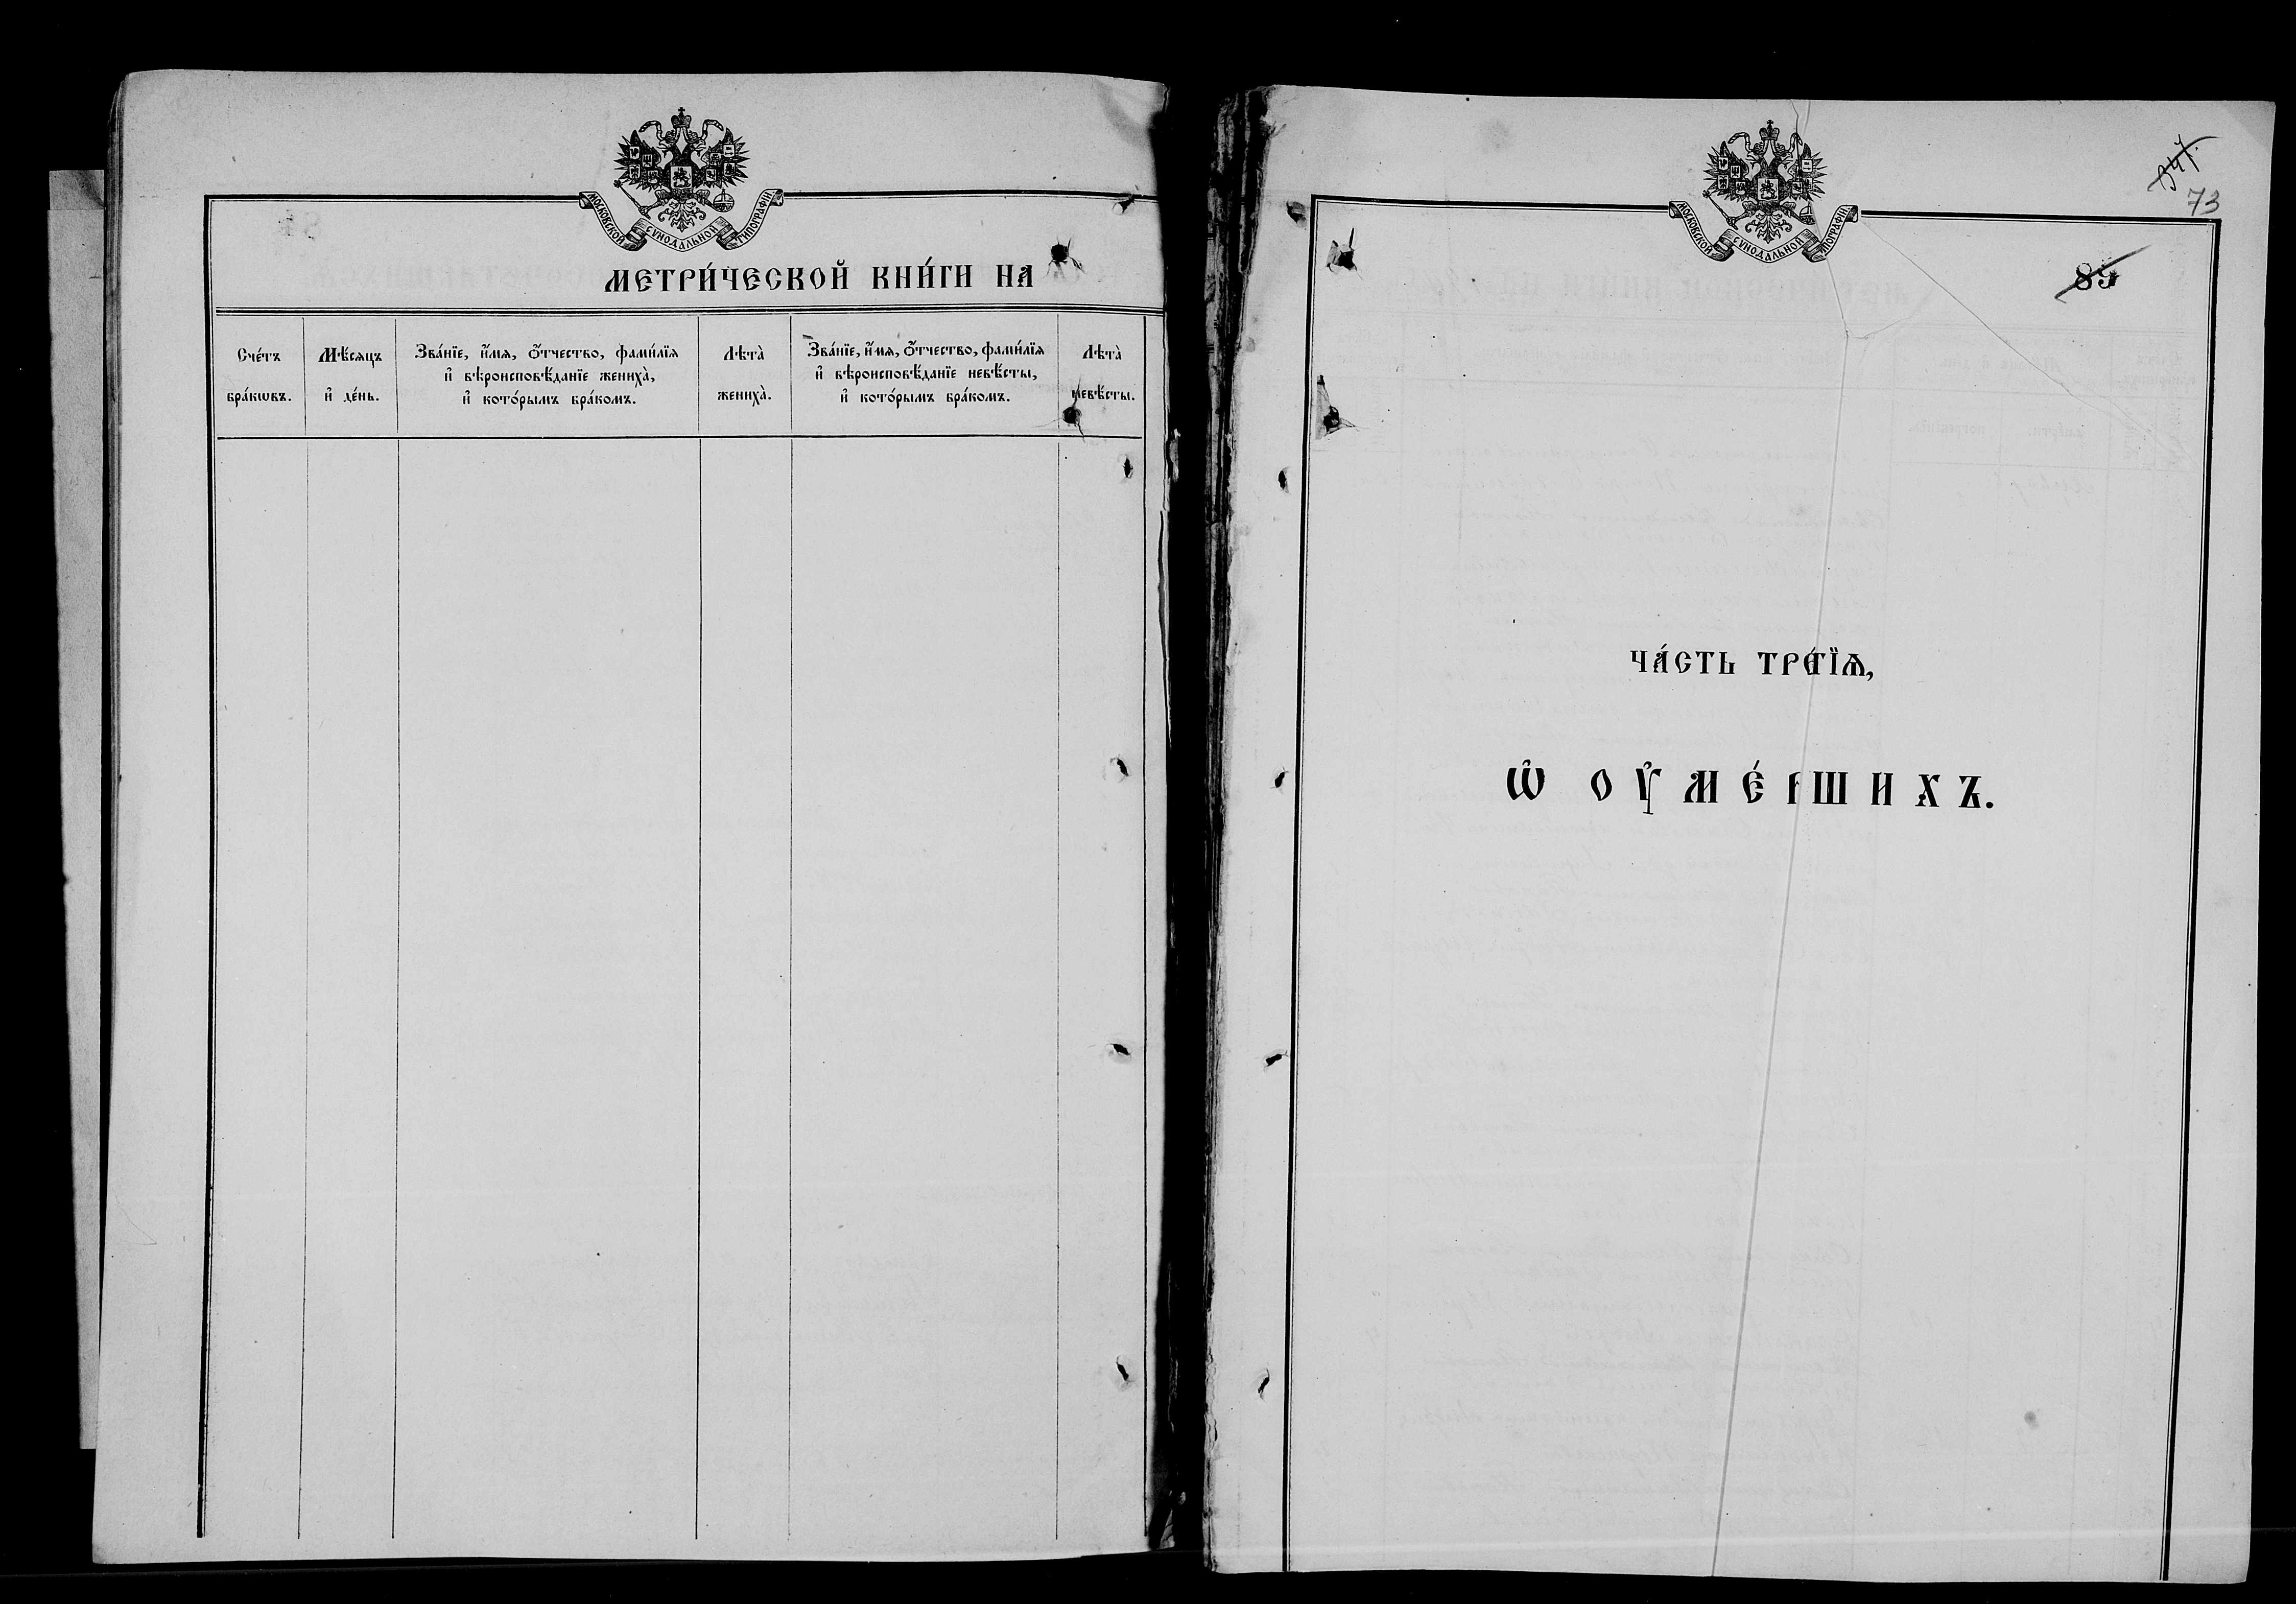 МОСКОВСКОЙ СУНОДАЛЬНОЙ ТИПОГРАФІИ.
МЕТРИ́ЧЕСКОЙ КНИ́ГИ НА
Сче́тъ бра́кѡвъ.
Мѣ́сяцъ и҆ де́нь.
Зва́нїе, и҆́мя, ѻ҆́тчество, фами́лїя
и҆ вѣроисповѣ́данїе жениха̀,
и҆ кото́рымъ бра́комъ.
Лѣта̀ жениха̀.
Зва́нїе, и҆́мя, ѻ҆́тчество, фами́лїя
и҆ вѣроисповѣ́данїе невѣ́сты,
и҆ кото́рымъ бра́комъ.
Лѣта̀ невѣ́сты.
МОСКОВСКОЙ СУНОДАЛЬНОЙ ТИПОГРАФІИ.
347.
73
85
ЧА́СТЬ ТРЕ́ТЇѦ,
Ѡ҆ ОУ҆МЕ́РШИХЪ.